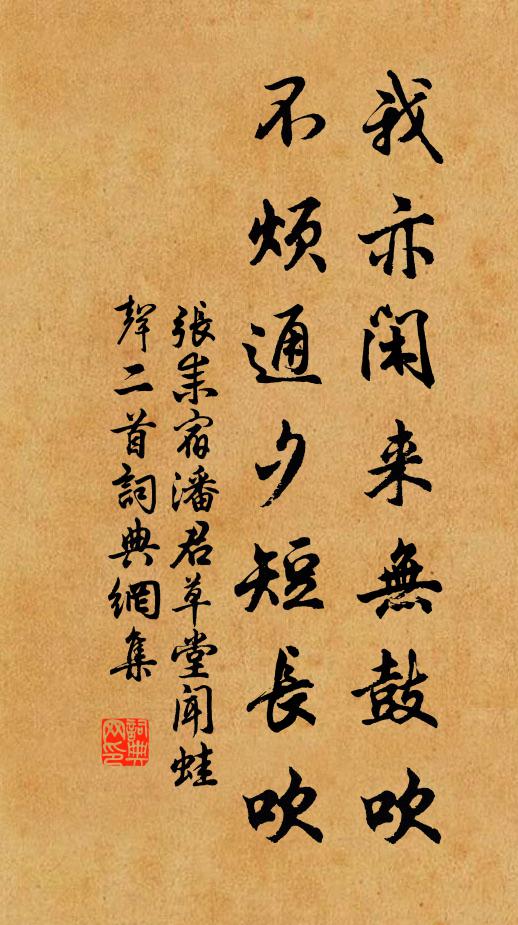 我亦闲来無鼓吹
不煩通夕短長吹
張耒宿潘君草堂聞蛙
聲二首詞典網集
詞典
网印